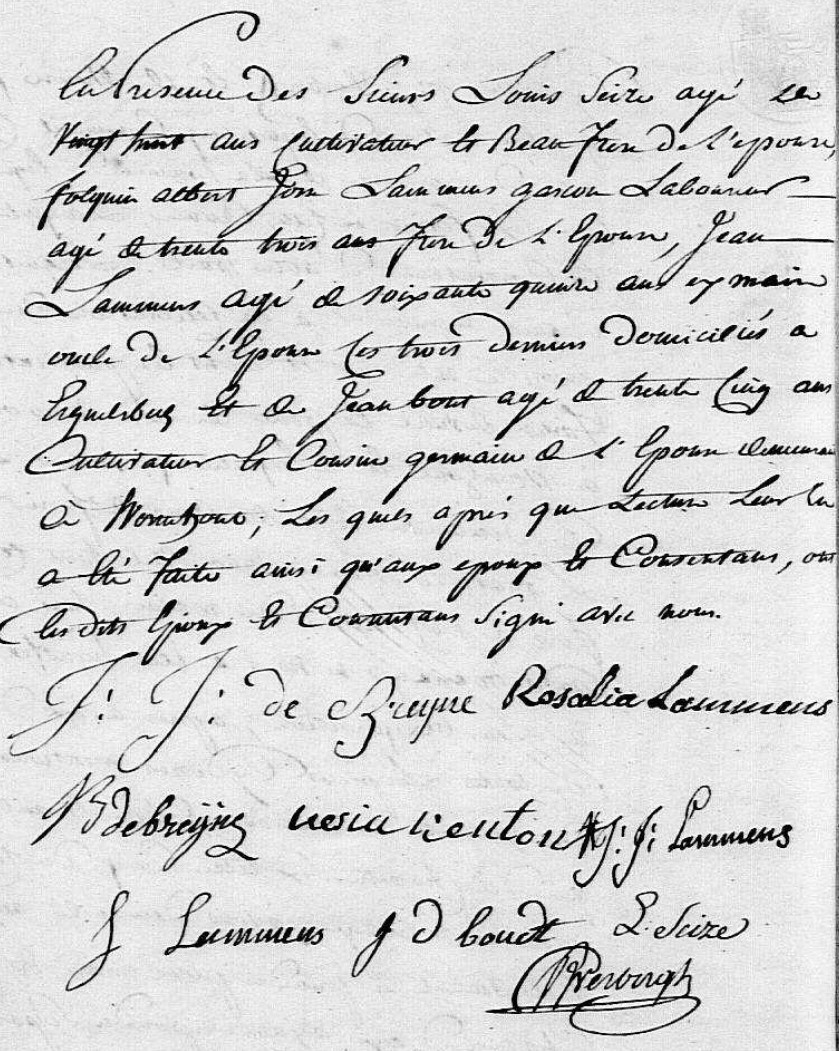 En Presence Des Sieurs Louis Seize agé de
Vingt huit ans Cultivateur et Beau Frere De l'epouse,
folquin albert Josn Lammens garcon Laboureur
agé de trente trois ans Frere De L'Epouse, Jean
Lammens agé de soixante quinze ans ex maire
oncle De L'Epouse Ces trois derniers domiciliés a
Erquelsbuq et de Jean bout agé de trente Cinq ans
Cultivateur et Cousin germain de L'Epouse demeurant
à Wormhout; Les quels après que Lecture Leur en
a été Faite ainsi qu'aux epoux et Consentans, ont
les dits Epoux et Consentans Signé avec nous.
J: J: de Breyne Rosalia Lammens
B debreyne J: J: Lammens
J Lammens J D boudt L. Seize